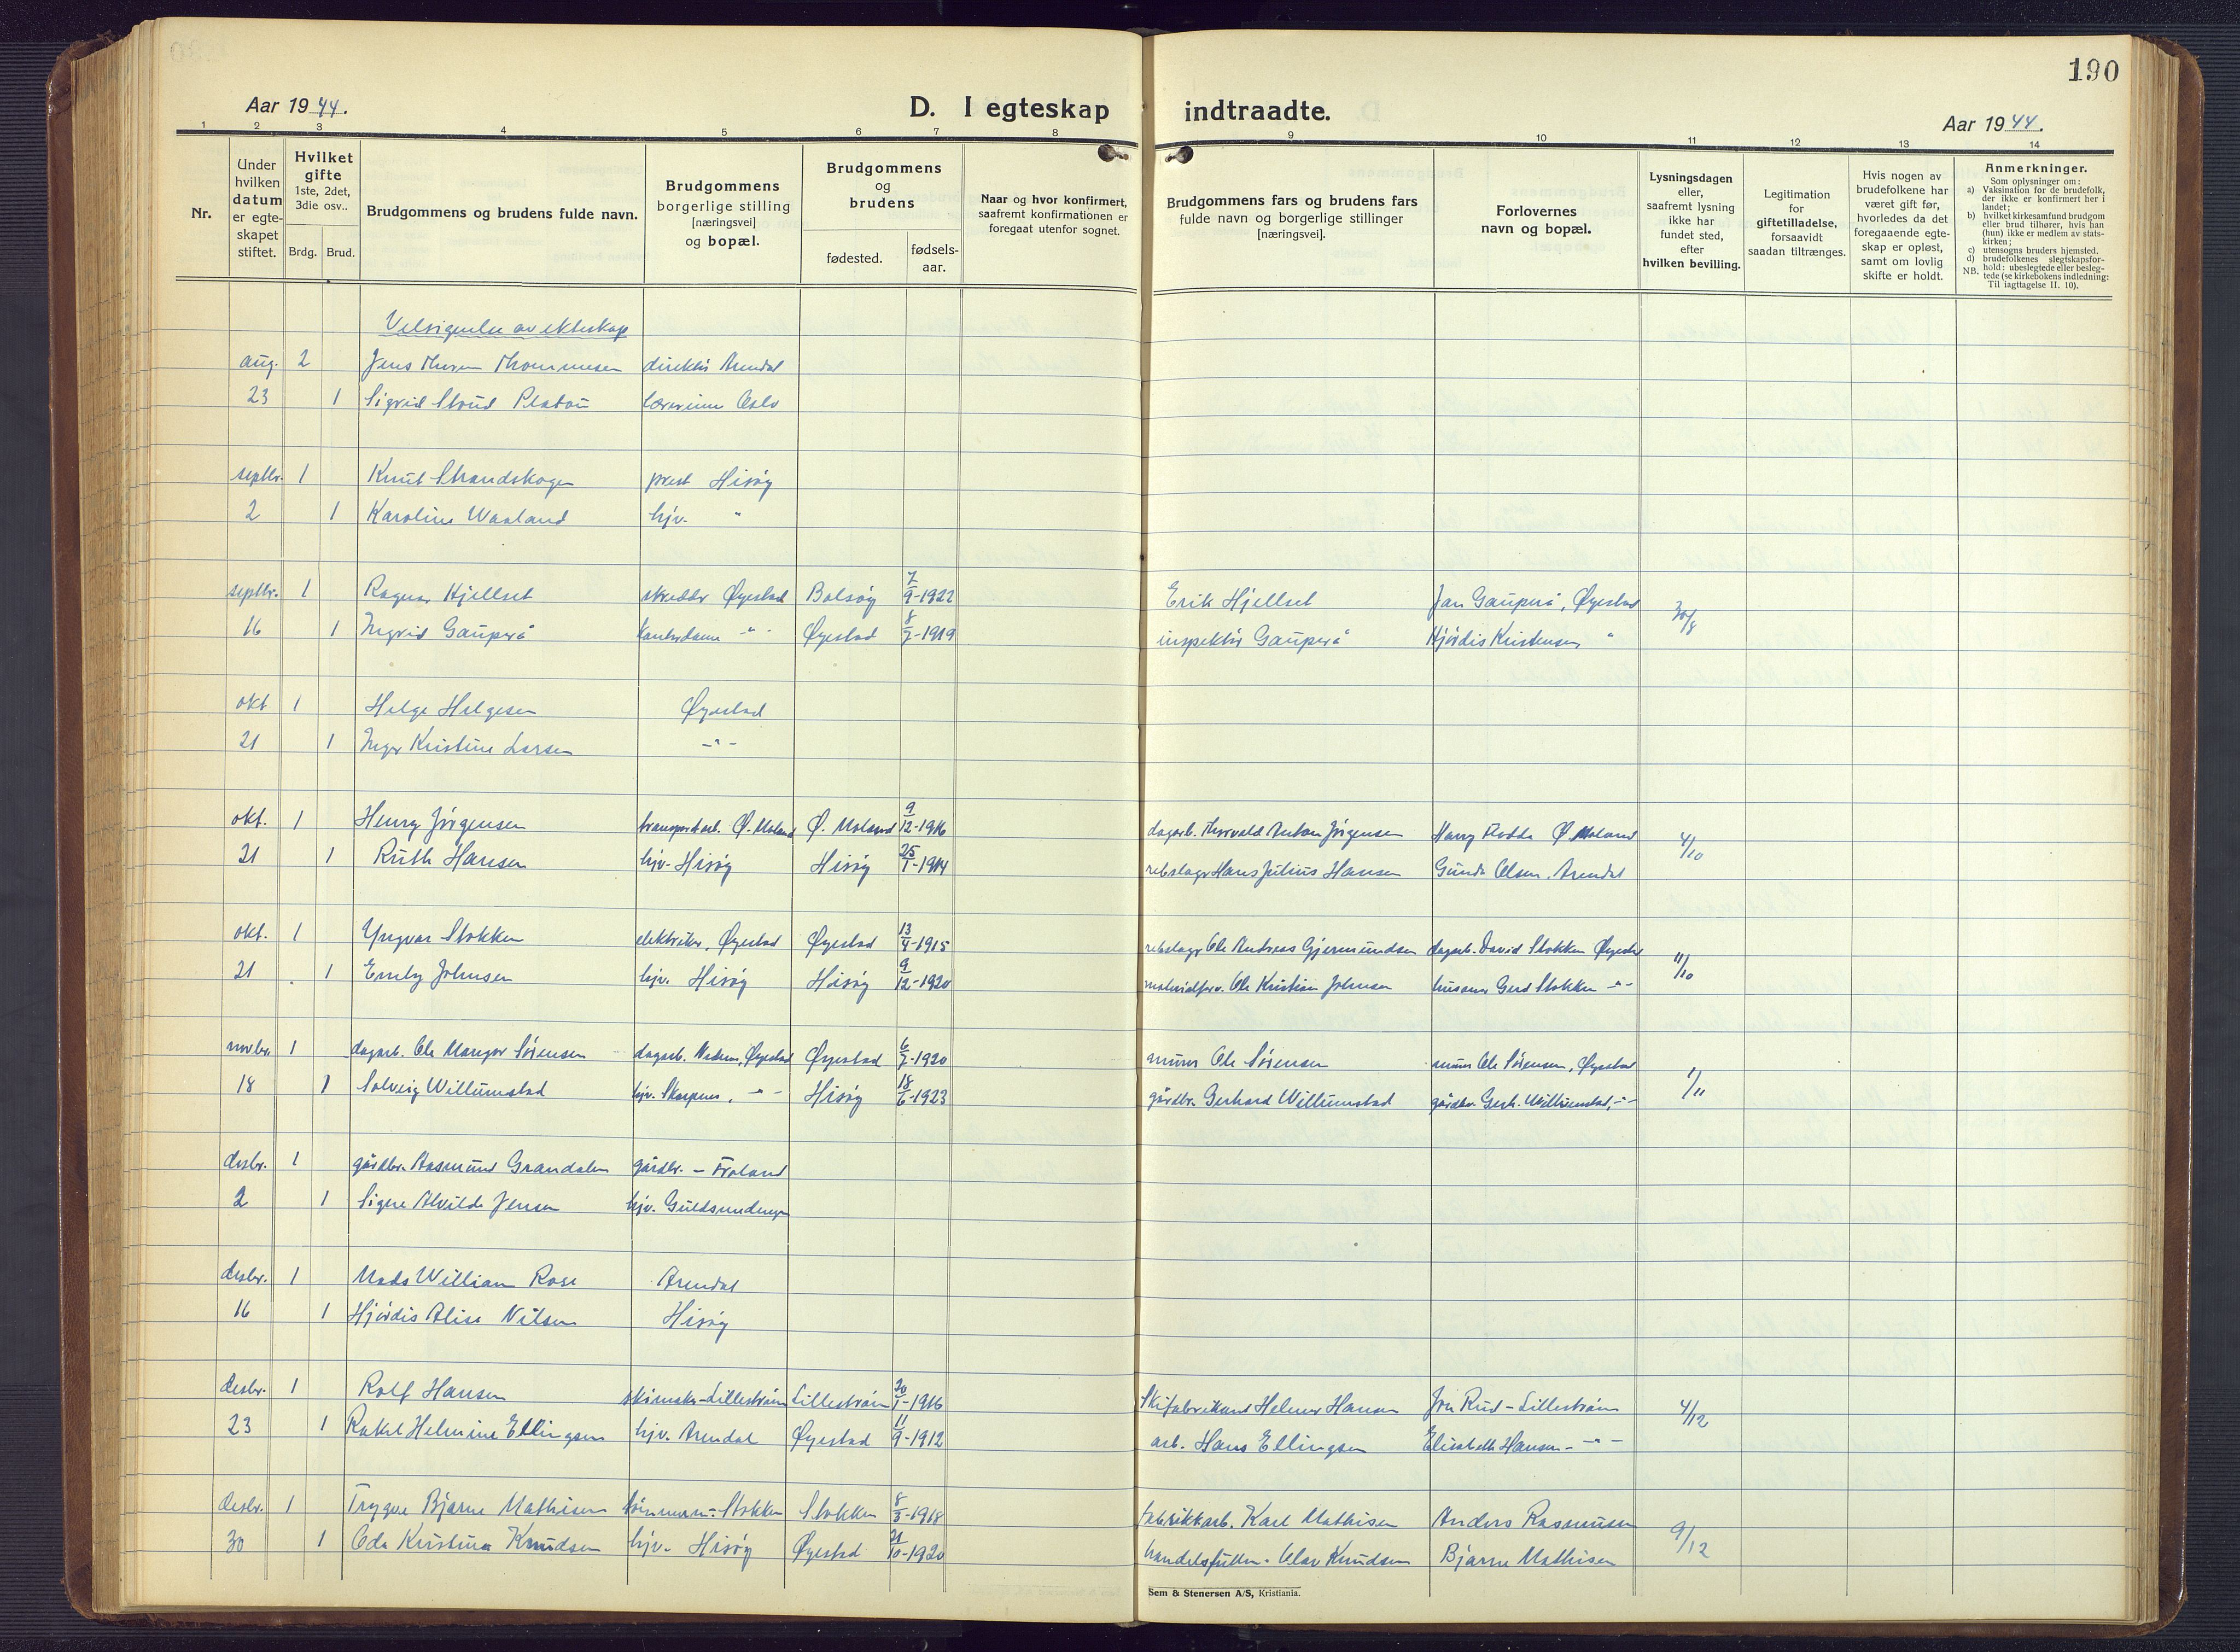 190
Aar 1944.
D. I egteskap indtraadte.
Aar 1944.
1 2 3 4 5 6 7 8 9 10 11 12 13 14
Nr.
Under hvilken datum er egteskapet stiftet.
Hvilket gifte 1ste, 2det, 3die osv..
Brdg. Brud.
Brudgommens og brudens fulde navn.
Brudgommens borgerlige stilling [næringsvei] og bopæl.
Brudgommens og brudens
fødested.
fødsels-aar.
Naar og hvor konfirmert, saafremt konfirmationen er foregaat utenfor sognet.
Brudgommens fars og brudens fars fulde navn og borgerlige stillinger [næringsvei].
Forlovernes navn og bopæl.
Lysningsdagen eller, saafremt lysning ikke har fundet sted, efter hvilken bevilling.
Legitimation for giftetilladelse, forsaavidt saadan tiltrænges.
Hvis nogen av brudefolkene har været gift før, hvorledes da det foregaaende egteskap er opløst, samt om lovlig skifte er holdt.
Anmerkninger.
Som oplysninger om:
a) Vaksination for de brudefolk, der ikke er konfirmert her i landet;
b) hvilket kirkesamfund brudgom eller brud tilhører, hvis han (hun) ikke er medlem av statskirken;
c) utensogns bruders hjemsted.
d) brudefolkenes slegtskapsforhold: ubeslegtede eller beslegtede (se kirkebokens indledning: Til iagttagelse II. 10).
NB.
Velsignelse av ekteskap
aug. 2 Jens Thommesen direktør Arendal
23 1 Sigrid Stoud Platou lærerinne Oslo
septbr. 1 Knut Strandskogen prest Hisøy
2 1 Karoline Waaland hjv. "
septbr. 1 Ragnar Hjellset skredder Øyestad Bolsøy 7/9-1922 Erik Hjellset Jan Gauperå, Øyestad 30/8
16 1 Ingrid Gauperå kontordame -"- Øyestad 8/7-1919 inspektør Gauperå Hjørdis Kristensen "
okt 1 Helge Helgesen Øyestad
21 1 Inger Kristine Larsen -"-
okt. 1 Henry Jørgensen transportarb. Ø. Moland Ø. Moland 9/12-1916 dagarb. Thorvald Anton Jørgensen Harry Flodda Ø. Moland 4/10
21 1 Ruth Hansen hjv. Hisøy Hisøy 25/1-1914 rebslager Hans Julius Hansen Gunda Olsen. Arendal
okt. 1 Yngvar Stokken elektriker, Øyestad Øyestad 13/4-1915 rebslager Ole Andreas Gjermundsen dagarb. David Stokken Øyestad 11/10
21 1 Emily Johnsen hjv. Hisøy Hisøy 9/12-1920 materialforv. Ole Kristian Johnsen husmor Gerd Stokken -"-
novbr. 1 dagarb. Ole Mangor Sørensen dagarb. Nedenes, Øyestad Øyestad 6/7-1920 murer Ole Sørensen murer Ole Sørensen, Øyestad 1/11
18 1 Solveig Willumstad hjv. Skarpnes, -"- Hisøy 18/6-1923 gårdbr. Gerhard Willumstad gårdbr. Gerh. Willumstad, -"-
desbr. 1 gårdbr. Aasmund Grandalen gårdbr. - Froland
2 1 Signe Alvilde Jensen hjv. Guldsmedengen
desbr. 1 Mads William Rose Arendal
16 1 Hjørdis Alise Nilsen Hisøy
desbr. 1 Rolf Hansen skimaker-Lillestrøm Lillestrøm 20/1-1916 Skifabrikant Helmer Hansen Jon Rud - Lillestrøm 4/12
23 1 Rakel Helmine Ellingsen hjv. Arendal Øyestad 11/9-1912 arb. Hans Ellingsen Elisabeth Hansen -"-
desbr. 1 Trygve Bjarne Mathisen tømmerm.-Stokken Stokken 8/3-1918 fabrikkarb. Karl Mathisen Anders Rasmussen 9/12
30 1 Oda Kristina Knudsen hjv. Hisøy Øyestad 21/10-1920 handelsfullm. Olav Knudsen Bjarne Mathisen
Sem & Stenersen A/S, Kristiania.